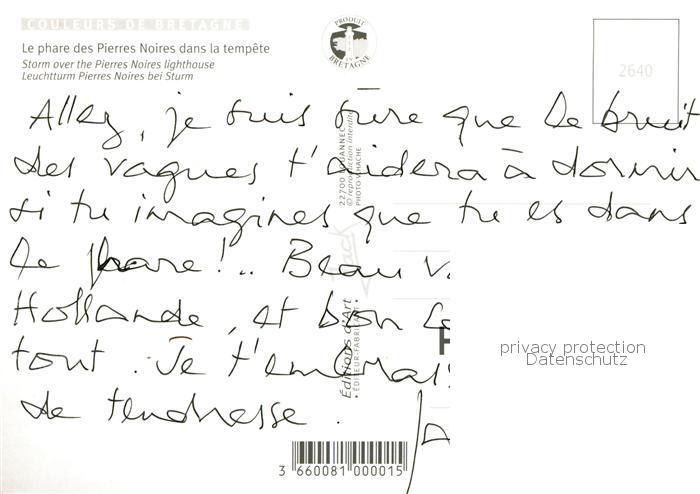 COULEURS DE BRETAGNE
Le phare des Pierres Noires dans la tempête
Storm over the Pierres Noires lighthouse
Leuchtturm Pierres Noires bei Sturm
PRODUIT EN BRETAGNE
2640
Allez, je suis sûre que le bruit
des vagues t'aidera à dormir
si tu imagines que tu es dans
le phare!.. Beau v
Hollande, et bon
tout. Je t'embras
de tendresse.
22700 LOUANNEC
© reproduction interdite
PHOTO V.HACHE
Jack
Éditions d'Art
• ÉDITEUR-FABRICANT •
privacy protection
Datenschutz
3 660081 000015